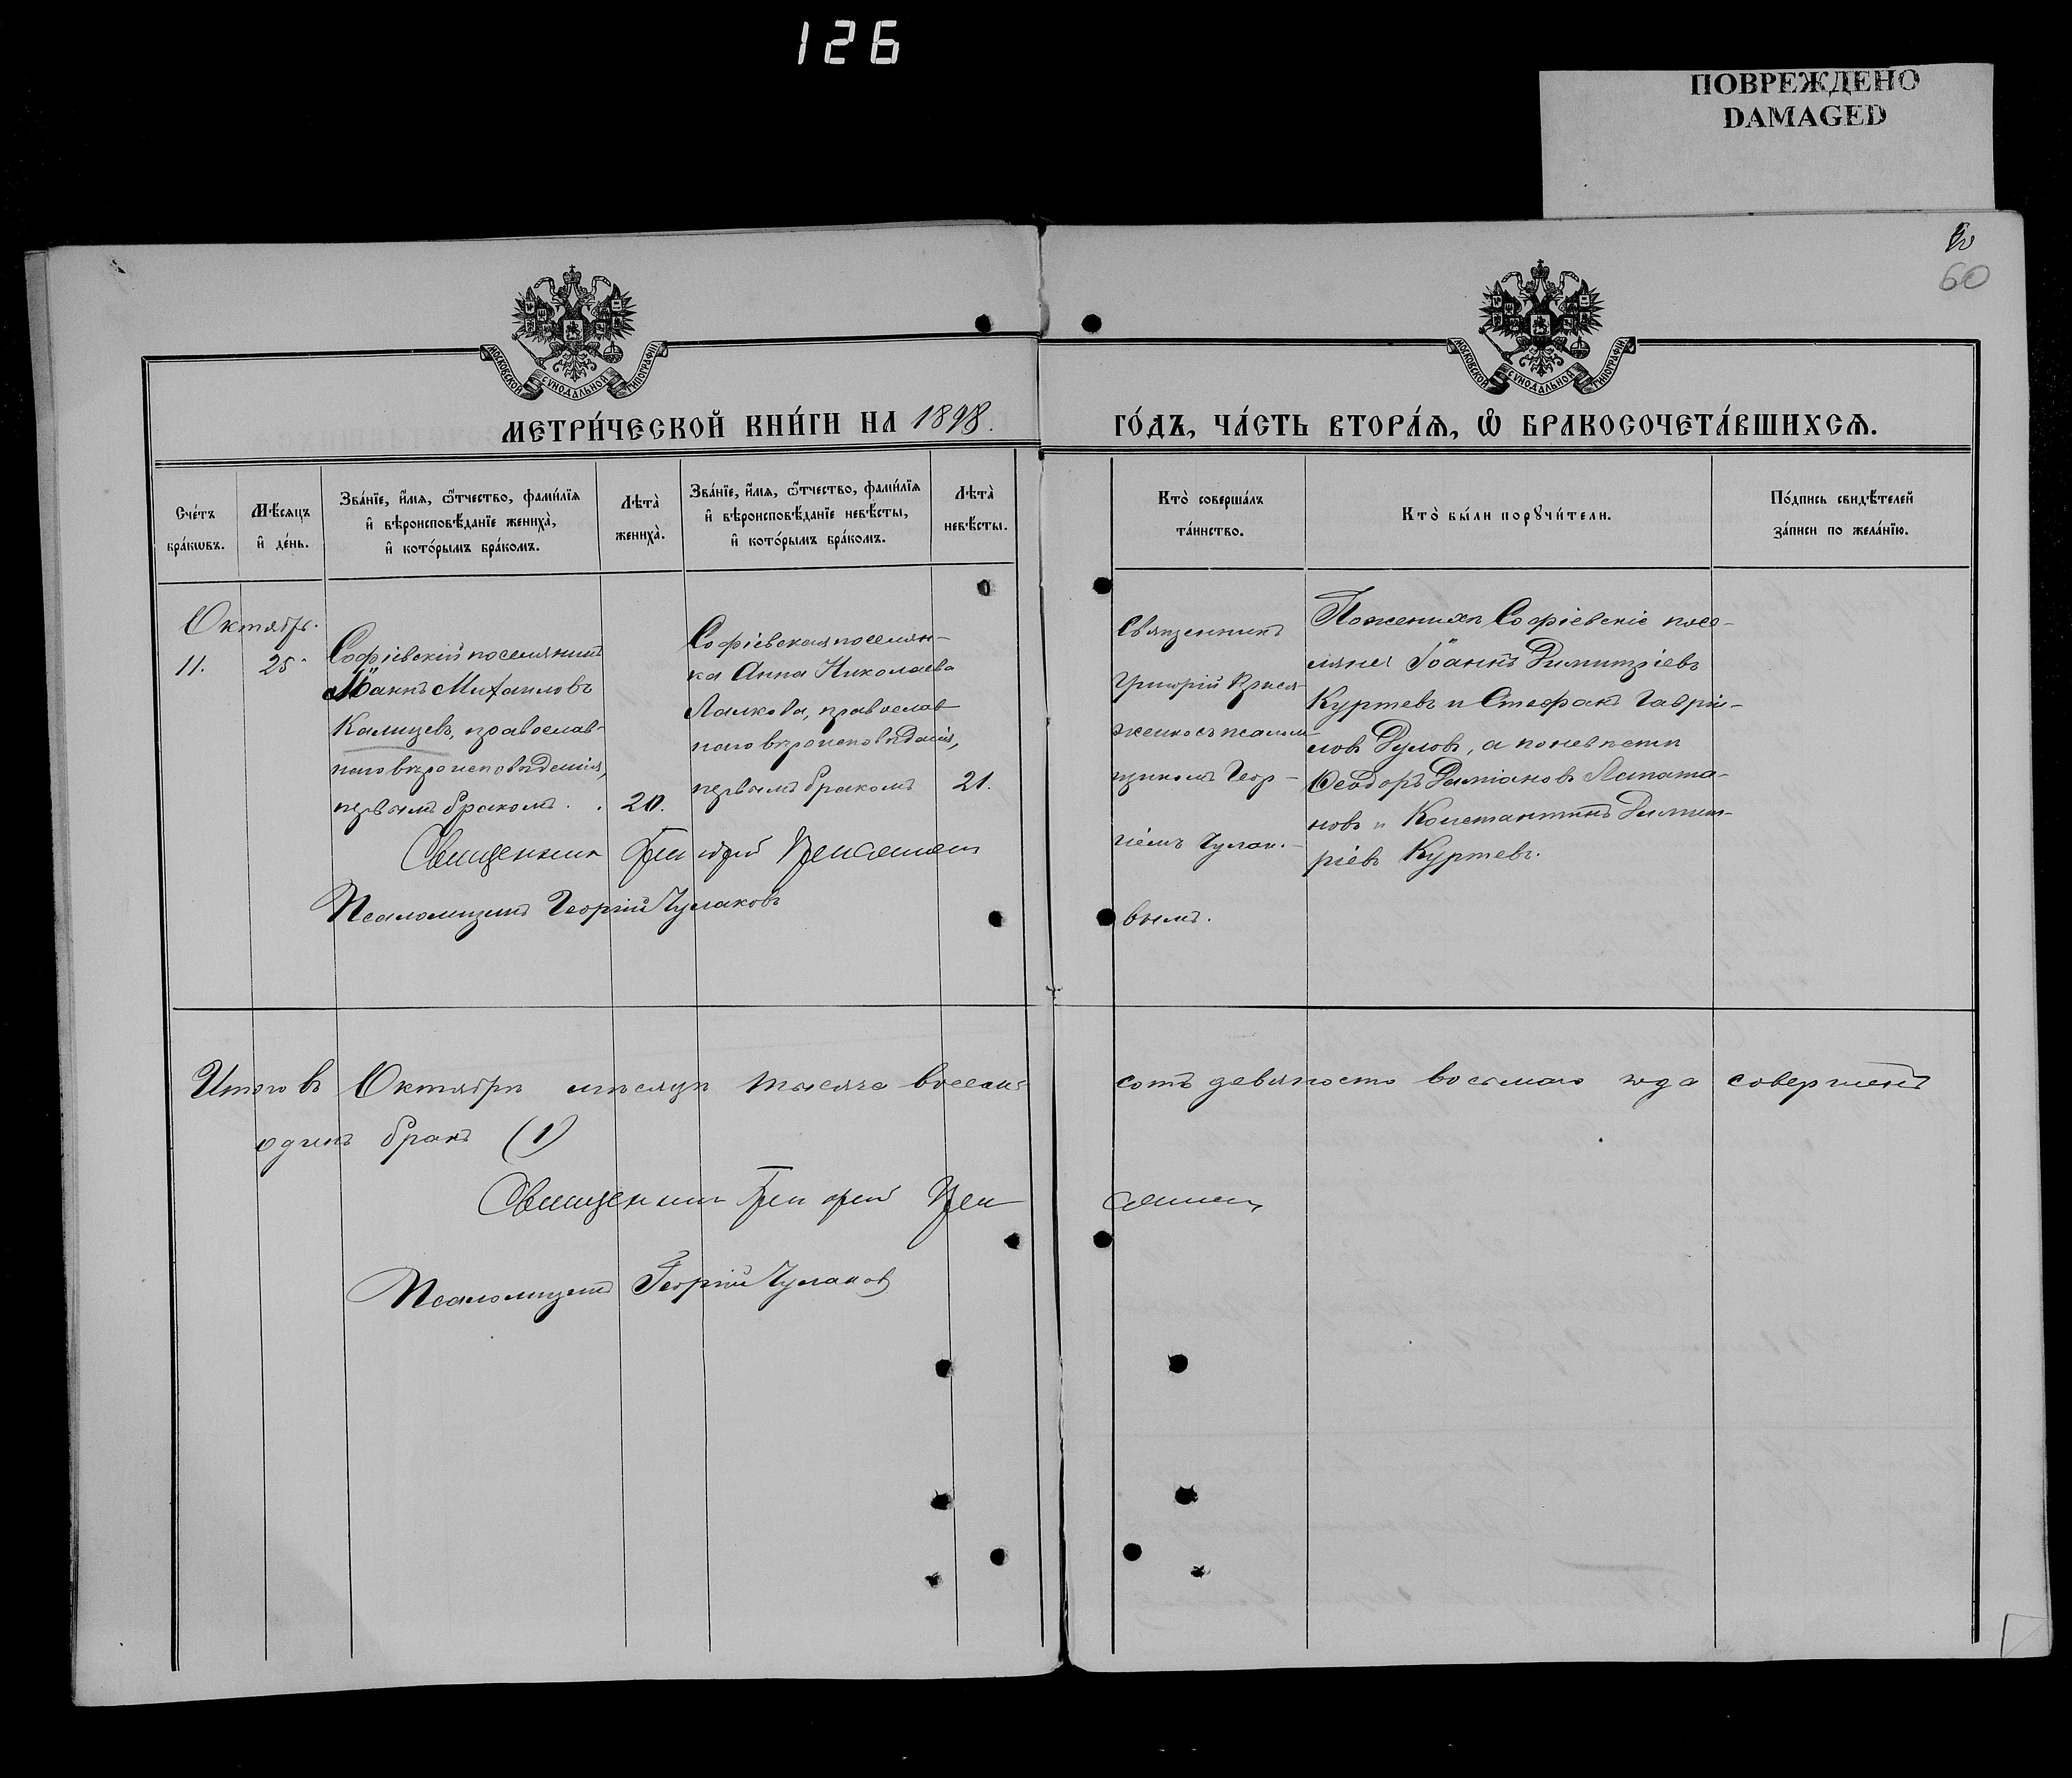 126
ПОВРЕЖДЕНО
DAMAGED
60
МОСКОВСКОЙ СѴНОДАЛЬНОЙ ТИПОГРАФІИ
МОСКОВСКОЙ СѴНОДАЛЬНОЙ ТИПОГРАФІИ
МЕТРИ́ЧЕСКОЙ КНИ́ГИ НА 1898.
ГО́ДЪ, ЧА́СТЬ ВТОРА́Ѧ, Ѽ БРАКОСОЧЕТА́ВШИХСѦ.
Сче́тъ
бра́кѡвъ.
Мѣ́сяцъ
и҆ де́нь.
Зва́нїе, и҆́мѧ, ѻ҆́тчество, фами́лїѧ
и҆ вѣроисповѣ́данїе жениха̀,
и҆ кото́рымъ бра́комъ.
Лѣта̀
жениха̀.
Зва́нїе, и҆́мѧ, ѻ҆́тчество, фами́лїѧ
и҆ вѣроисповѣ́данїе невѣ́сты,
и҆ кото́рымъ бра́комъ.
Лѣта̀
невѣ́сты.
Кто̀ совершáлъ
та́инство.
Кто̀ бы́ли порꙋчи́тели.
По́дпись свидѣ́телей
за́писи по жела́нїю.
Октябрь.
11.
25
Софіевскій поселянинъ
Іоаннъ Михаиловъ
Калицевъ, православ-
наго вѣроисповѣданія,
первымъ бракомъ.
20.
Софіевская поселян-
ка Анна Николаева
Лалкова, православ
наго вѣроисповѣданія,
первымъ бракомъ
21.
Священникъ
Григорій
псалом
щикомъ Геор-
гіемъ Чулак.-
вымъ.
По женихѣ Софіевскіе посе-
ляне Іоаннъ Димитріевъ
Куртевъ и Стефанъ Гаврій-
ловъ Дуловъ, а по невѣстѣ
Ѳеодоръ Даміановъ Лапата-
новъ и Константинъ Димит-
ріевъ Куртевъ.
Священникъ Григорій
Псаломщикъ Георгій Чулаковъ
Итого въ Октябрѣ мѣсяцѣ тысяча восемь
сотъ девяносто восьмого года совершенъ
одинъ бракъ (1)
Священникъ Григорій
Псаломщикъ Георгій Чулаковъ